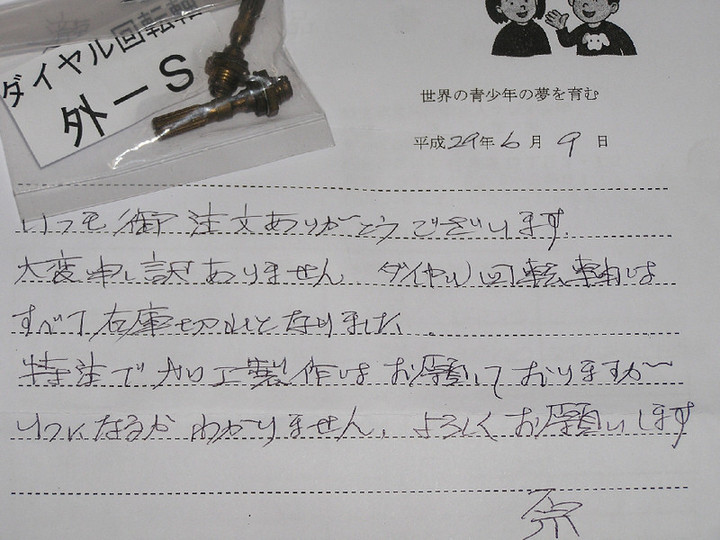 ダイヤル回転軸
外ーS
世界の青少年の夢を育む
平成29年6月9日
いつも御注文ありがとうございます。
大変申し訳ありません ダイヤル回転軸は
すべて在庫切れとなりました。
特注で加工製作はお願いしておりますが
いつになるかわかりません、よろしくお願いします